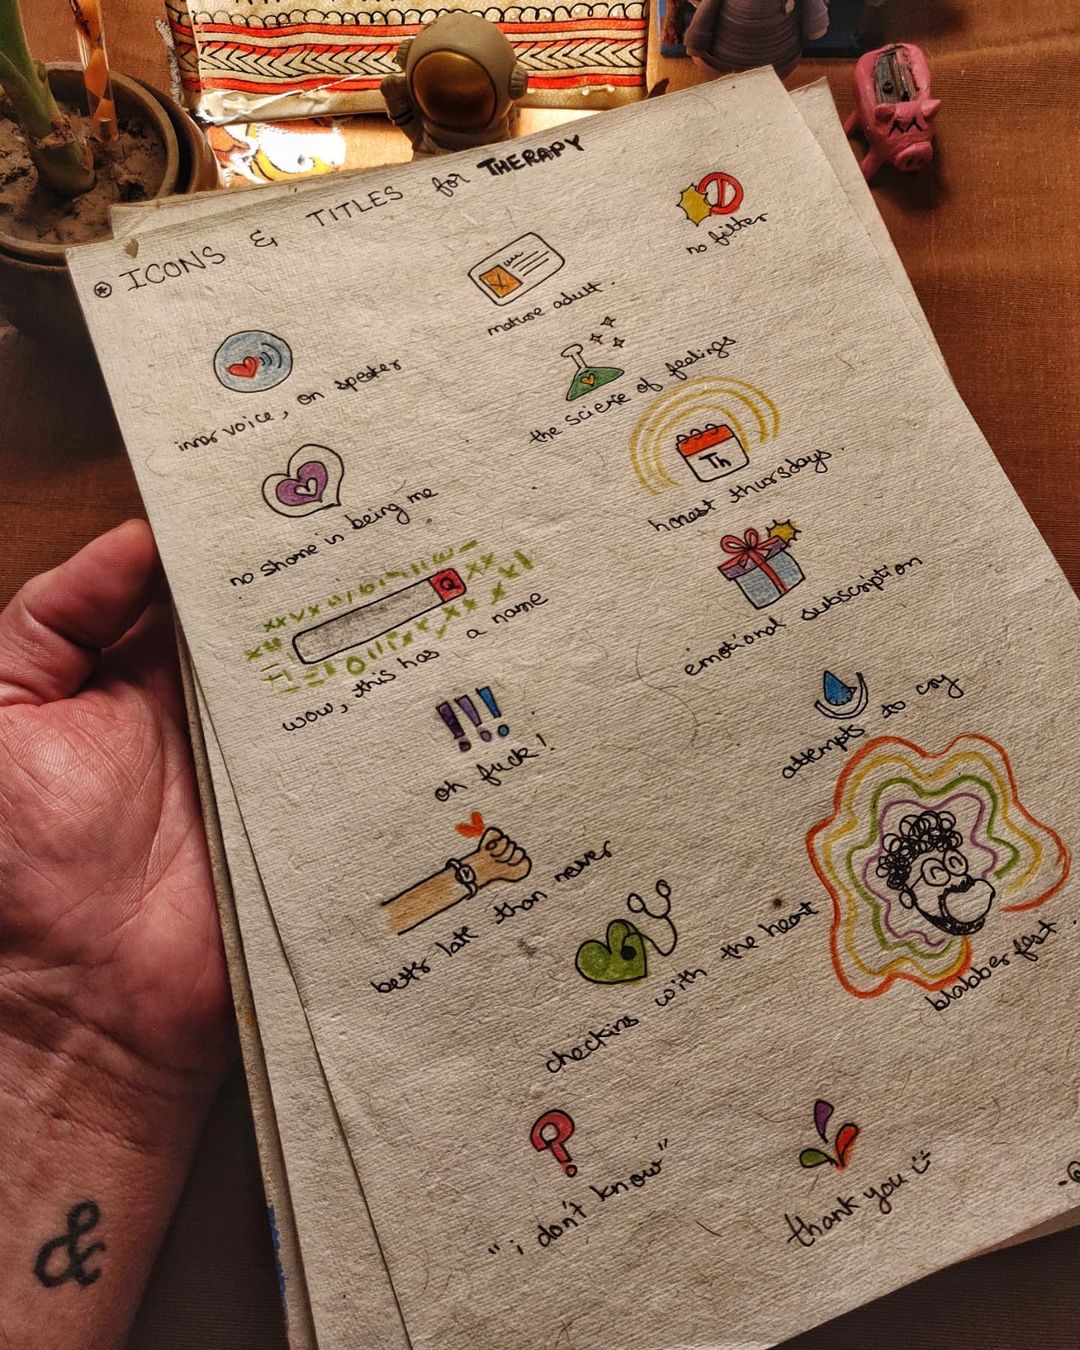 ICONS & TITLES for THERAPY
no filter
mature adult.
inner voice, on speaker
the science of feelings
Th
honest thursdays.
no shame in being me
emotional subscription
wow, this has a name
attempts to cry
oh fuck!
better late than never
checkins with the heart
blabber fest.
"i don't know"
thank you
&